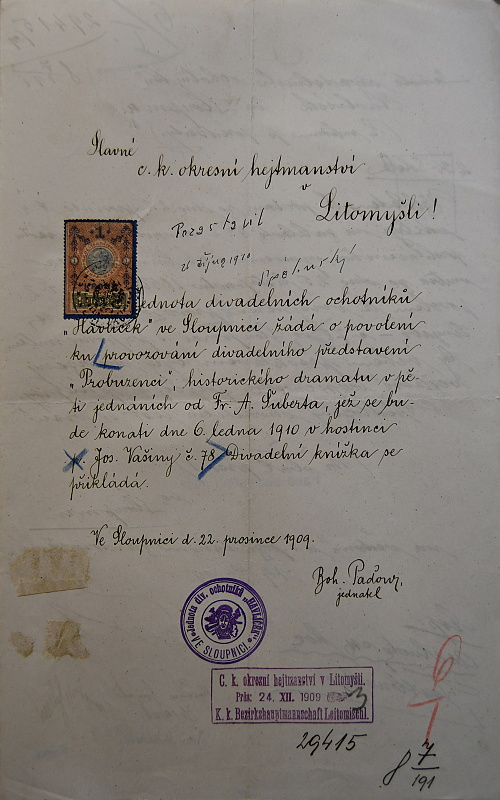 Slavné
c. k. okresní hejtmanství
v
Litomyšli!
1
Jednota divadelních ochotníků
„Havlíček" ve Sloupnici žádá o povolení
ku provozování divadelního představení
„Probuzenci", historického dramatu v pě-
ti jednáních od Fr. A. Šuberta, jež se bu-
de konati dne 6. ledna 1910 v hostinci
p. Jos. Vašiny č. 78. Divadelní knížka se
přikládá.
Ve Sloupnici d. 22. prosince 1909.
Boh.
jednatel
Jednota div. ochotníků „HAVLÍČEK"
VE SLOUPNICI.
C. k. okresní hejtmanství v Litomyšli.
Präs: 24. XII. 1909
K. k. Bezirkshauptmannschaft Leitomischl.
29415
6
1
8 7
191